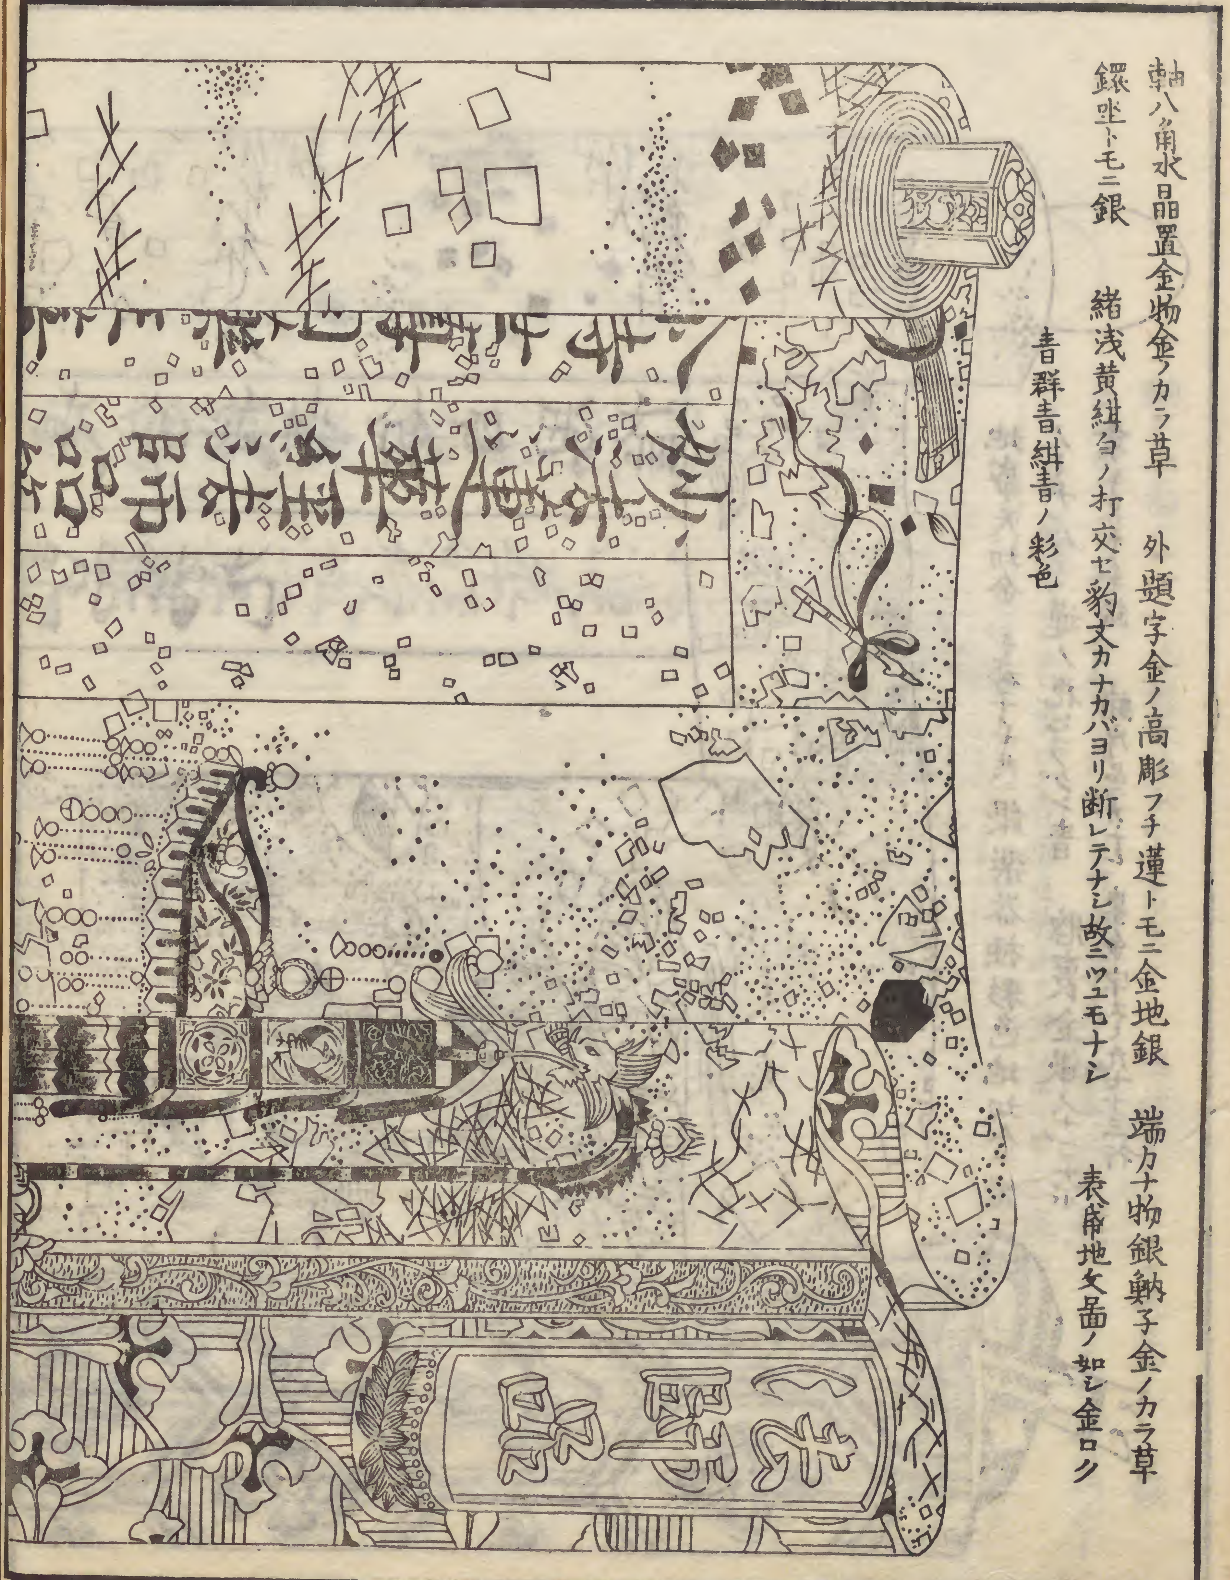 軸八角水晶置金物金ノカラ草　外題字金ノ高彫フチ蓮トモニ金地銀　端カナ物銀魶子金ノカラ草
鐶坐トモニ銀　緒浅黄紺ヨノ打交セ豹文カナカバヨリ断レテナシ故ニツユモナシ　表帋地文啚ノ如シ金ロク
青群青紺青ノ彩色
妙法蓮華經法師品
法師品